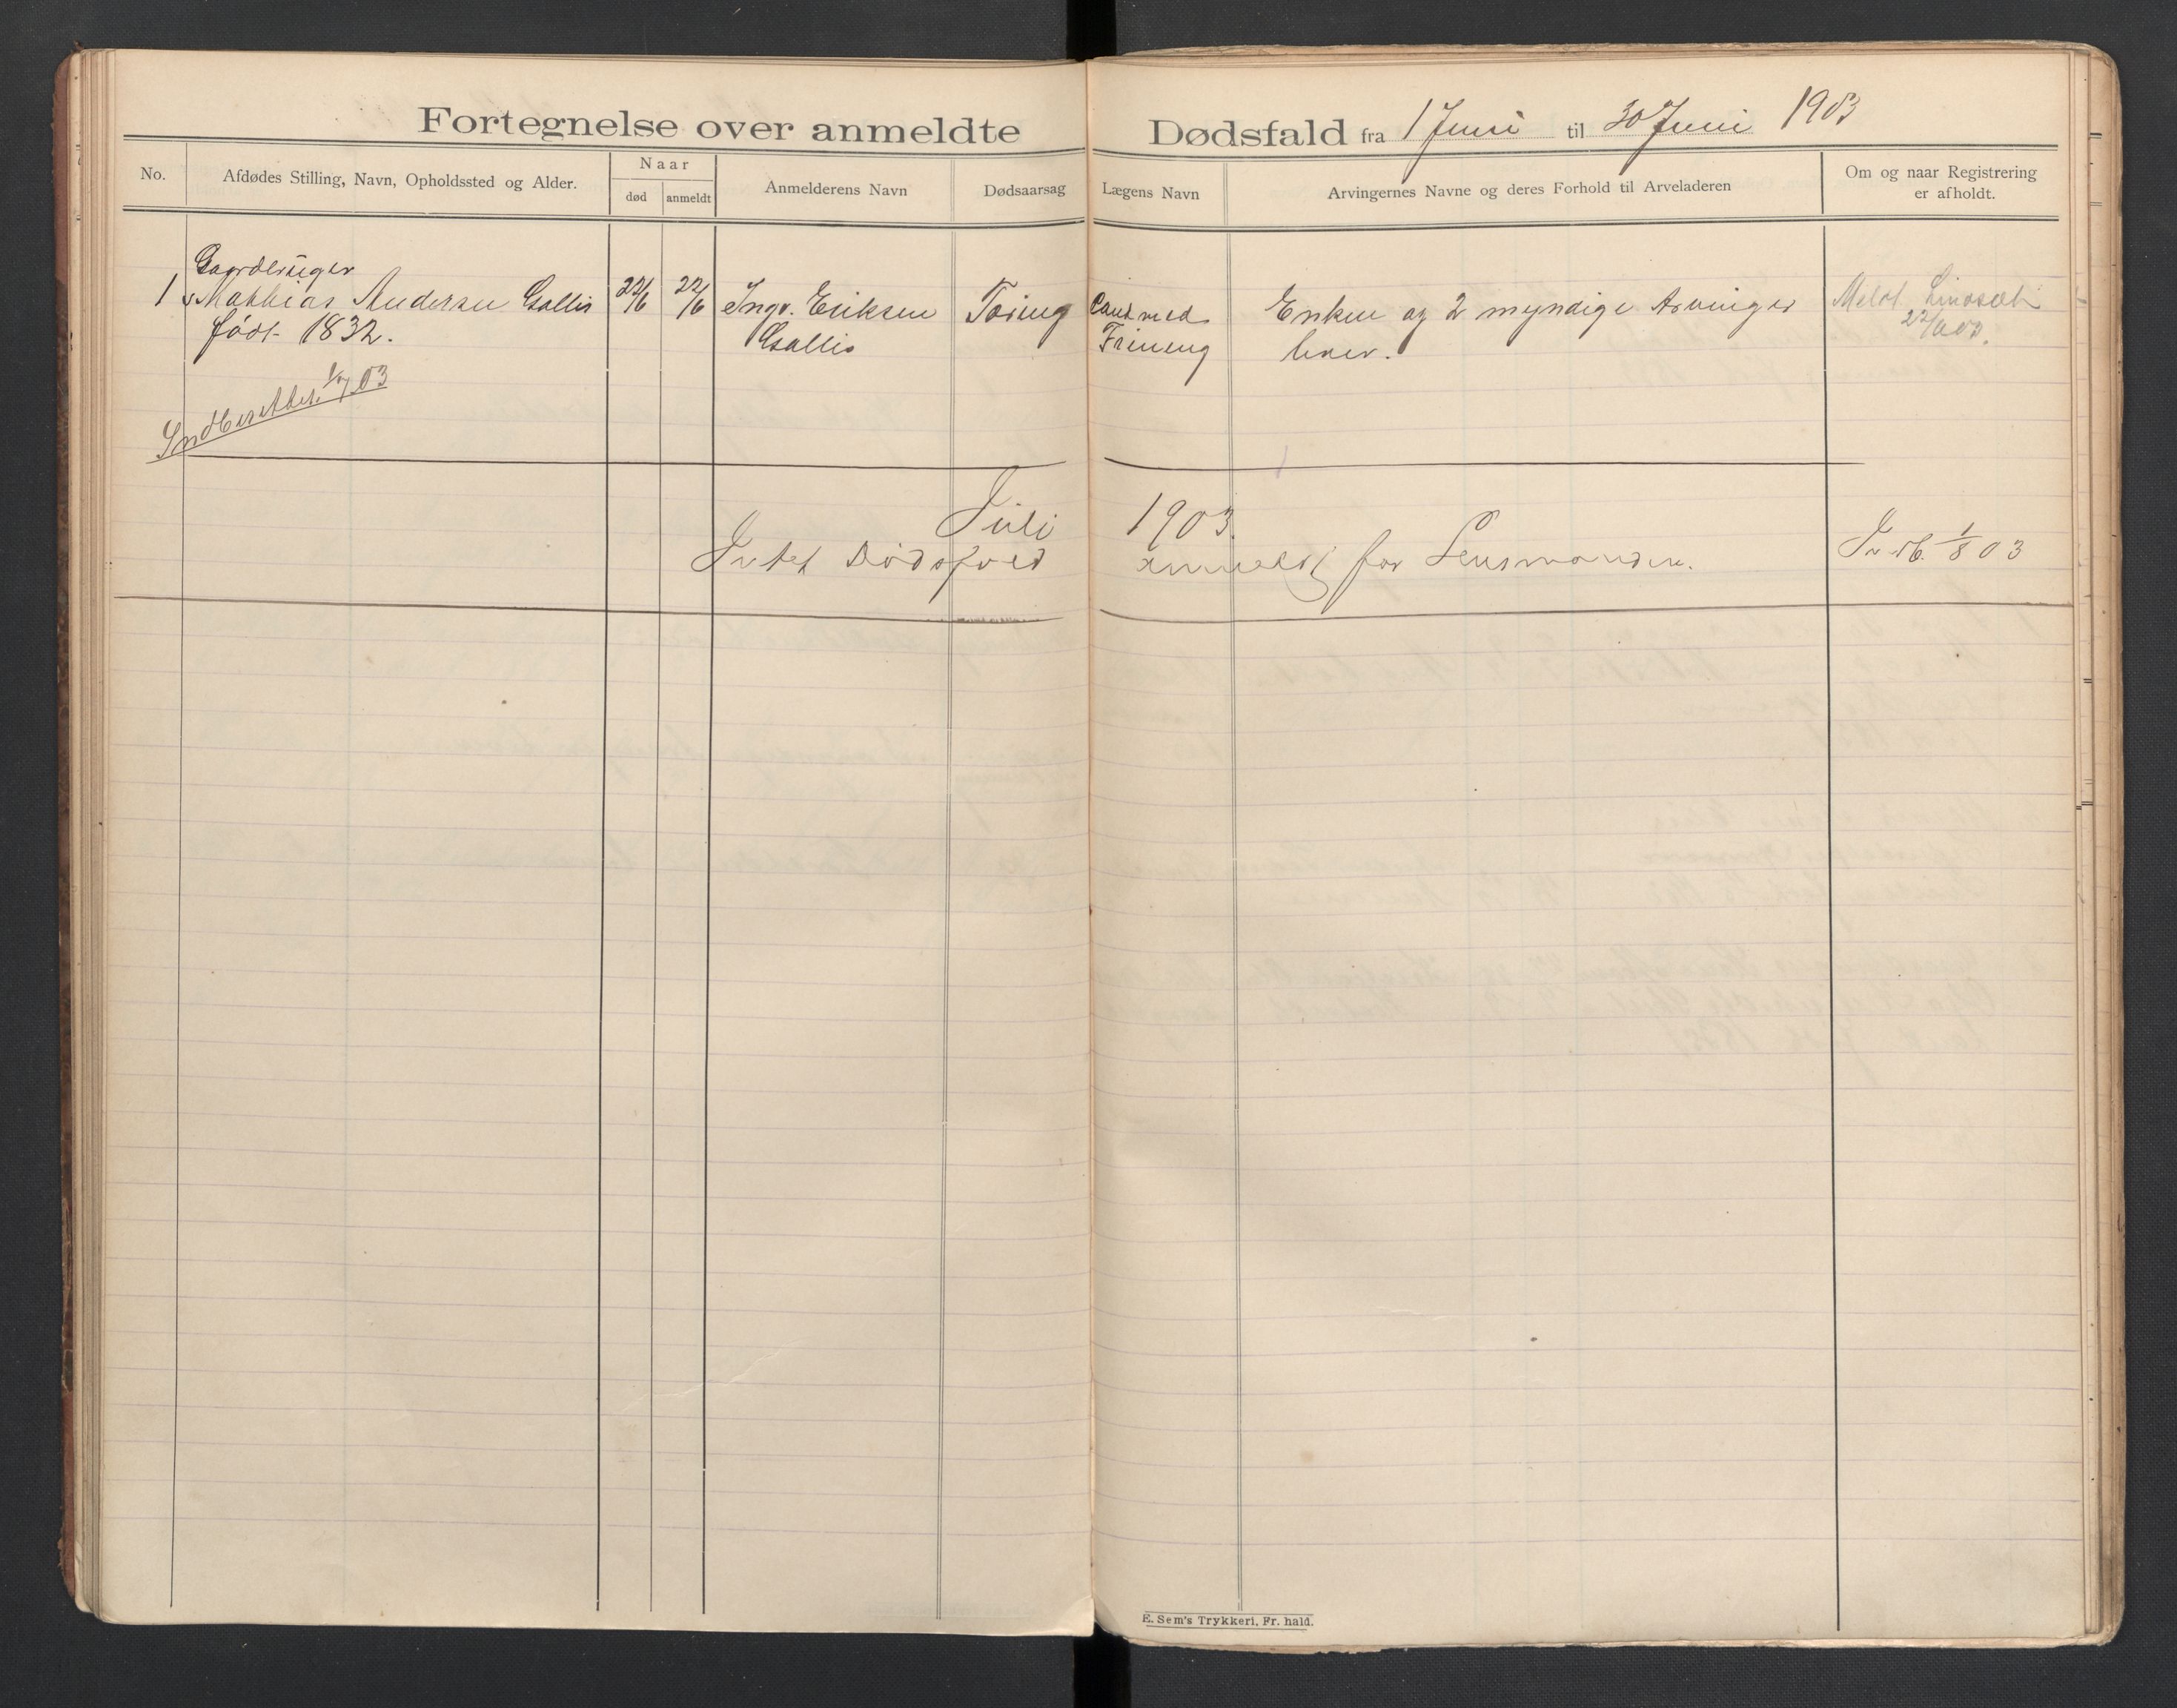 Fortegnelse over anmeldte Dødsfald fra 1 Juni til 30 Juni 1903
No.
Afdødes Stilling, Navn, Opholdssted og Alder.
Naar
død
anmeldt
Anmelderens Navn
Dødsaarsag
Lægens Navn
Arvingernes Navne og deres Forhold til Arveladeren
Om og naar Registrering
er afholdt.
Gaardbruger
1 Mathias Andersen Gallis 22/6 22/6 Ingv. Eriksen Tæring Cand med Enken og 2 myndige Arvinger Meldt Lindsæth
født 1832. Gallis lever. 22/6 03.
Indberettet 1/7 03
Juli 1903.
Intet Dødsfald anmeldt for Lensmanden. Indb. 1/8 03
E. Sem's Trykkeri, Fr. hald.